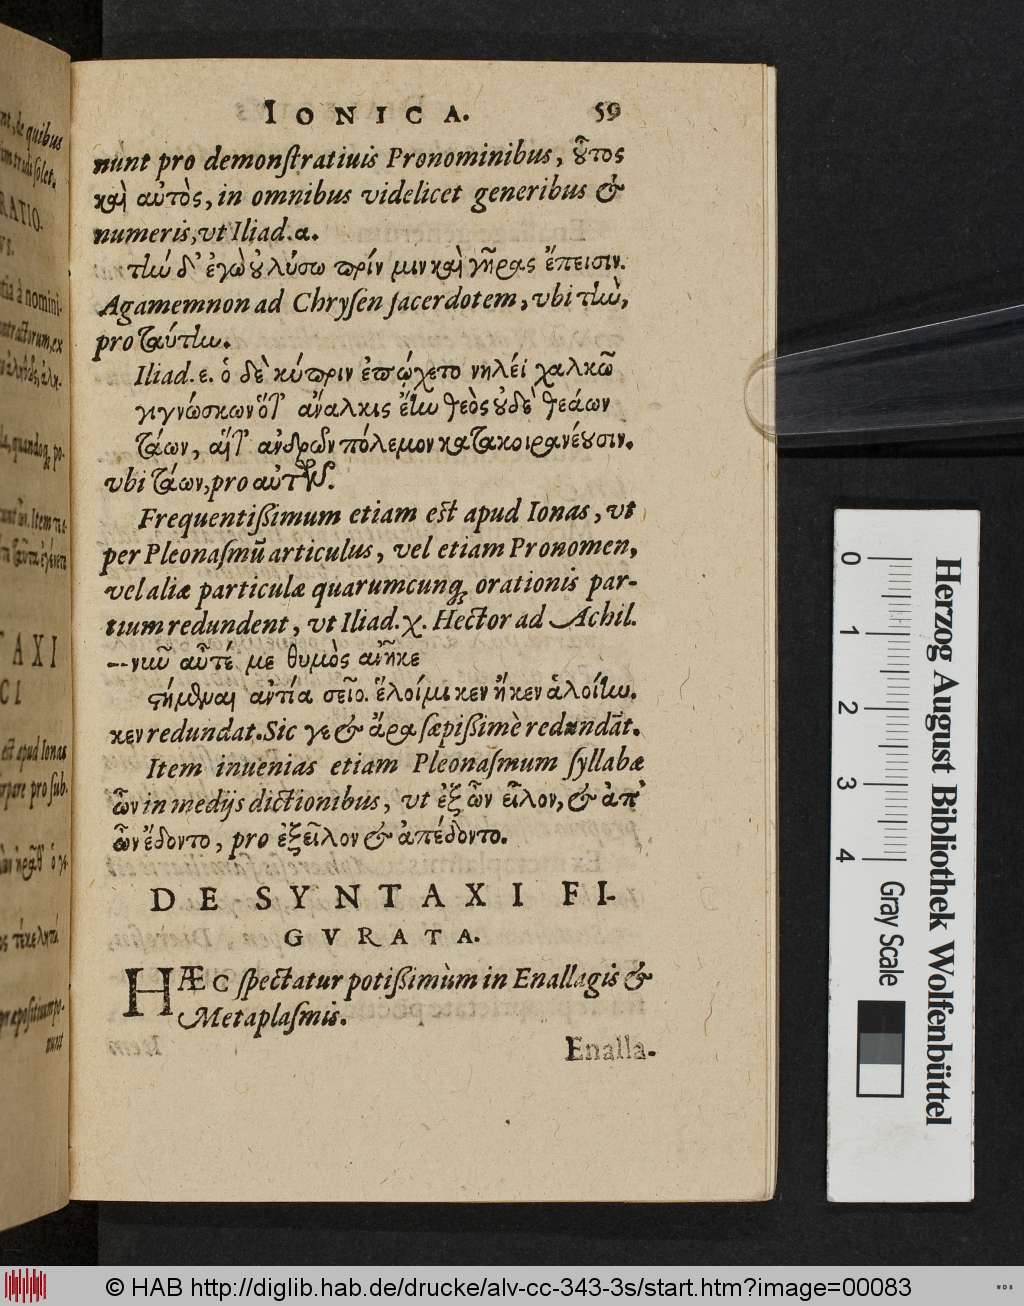 IONICA. 59
nunt pro demonſtratiuis Pronominibus, οὗτος
καὶ αὐτὸς, in omnibus videlicet generibus &
numeris, vt Iliad. α.
τὴν δ' ἐγὼ οὐ λύσω πρίν μιν καὶ γῆρας ἔπεισιν.
Agamemnon ad Chryſen ſacerdotem, vbi τὴν,
pro ταύτην.
Iliad. ε. ὁ δὲ κύπριν ἐπῴχετο νηλέϊ χαλκῶ
γιγνώσκων ὅτ' ἄναλκις ἔην θεὸς οὐδὲ θεάων
τάων, αἵτ' ἀνδρῶν πόλεμον κατακοιρανέουσιν.
vbi τάων, pro αὐτῶν.
Frequentißimum etiam eſt apud Ionas, vt
per Pleonaſmũ articulus, vel etiam Pronomen,
vel aliæ particulæ quarumcunq; orationis par-
tium redundent, vt Iliad. χ. Hector ad Achil.
--νῦν αὖτέ με θυμὸς ἀνῆκε
στήμεναι ἀντία σεῖο. ἕλοίμι κεν ἤ κεν ἁλοίην.
κεν redundat. Sic γε & ἄρα ſæpißimè redundãt.
Item inuenias etiam Pleonaſmum ſyllabæ
ὦν in medijs dictionibus, vt ἐξ ὦν εἷλον, & ἀπ'
ὦν ἔδοντο, pro ἐξεῖλον & ἀπέδοντο.
DE SYNTAXI FI-
GVRATA.
HÆC ſpectatur potißimùm in Enallagis &
Metaplaſmis.
Enalla-
Herzog August Bibliothek Wolfenbüttel
0 1 2 3 4
Gray Scale
© HAB http://diglib.hab.de/drucke/alv-cc-343-3s/start.htm?image=00083